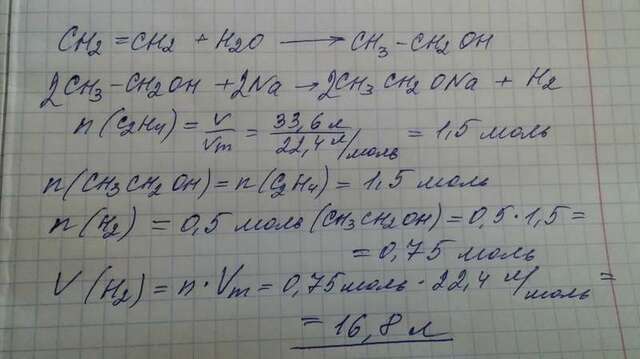 CH2 = CH2 + H2O ⟶ CH3 - CH2OH
2CH3 - CH2OH + 2Na → 2CH3CH2ONa + H2
n(C2H4) = V/Vm = 33,6 л / 22,4 л/моль = 1,5 моль
n(CH3CH2OH) = n(C2H4) = 1,5 моль
n(H2) = 0,5 моль (CH3CH2OH) = 0,5 · 1,5 =
= 0,75 моль
V(H2) = n · Vm = 0,75 моль · 22,4 л/моль =
= 16,8 л